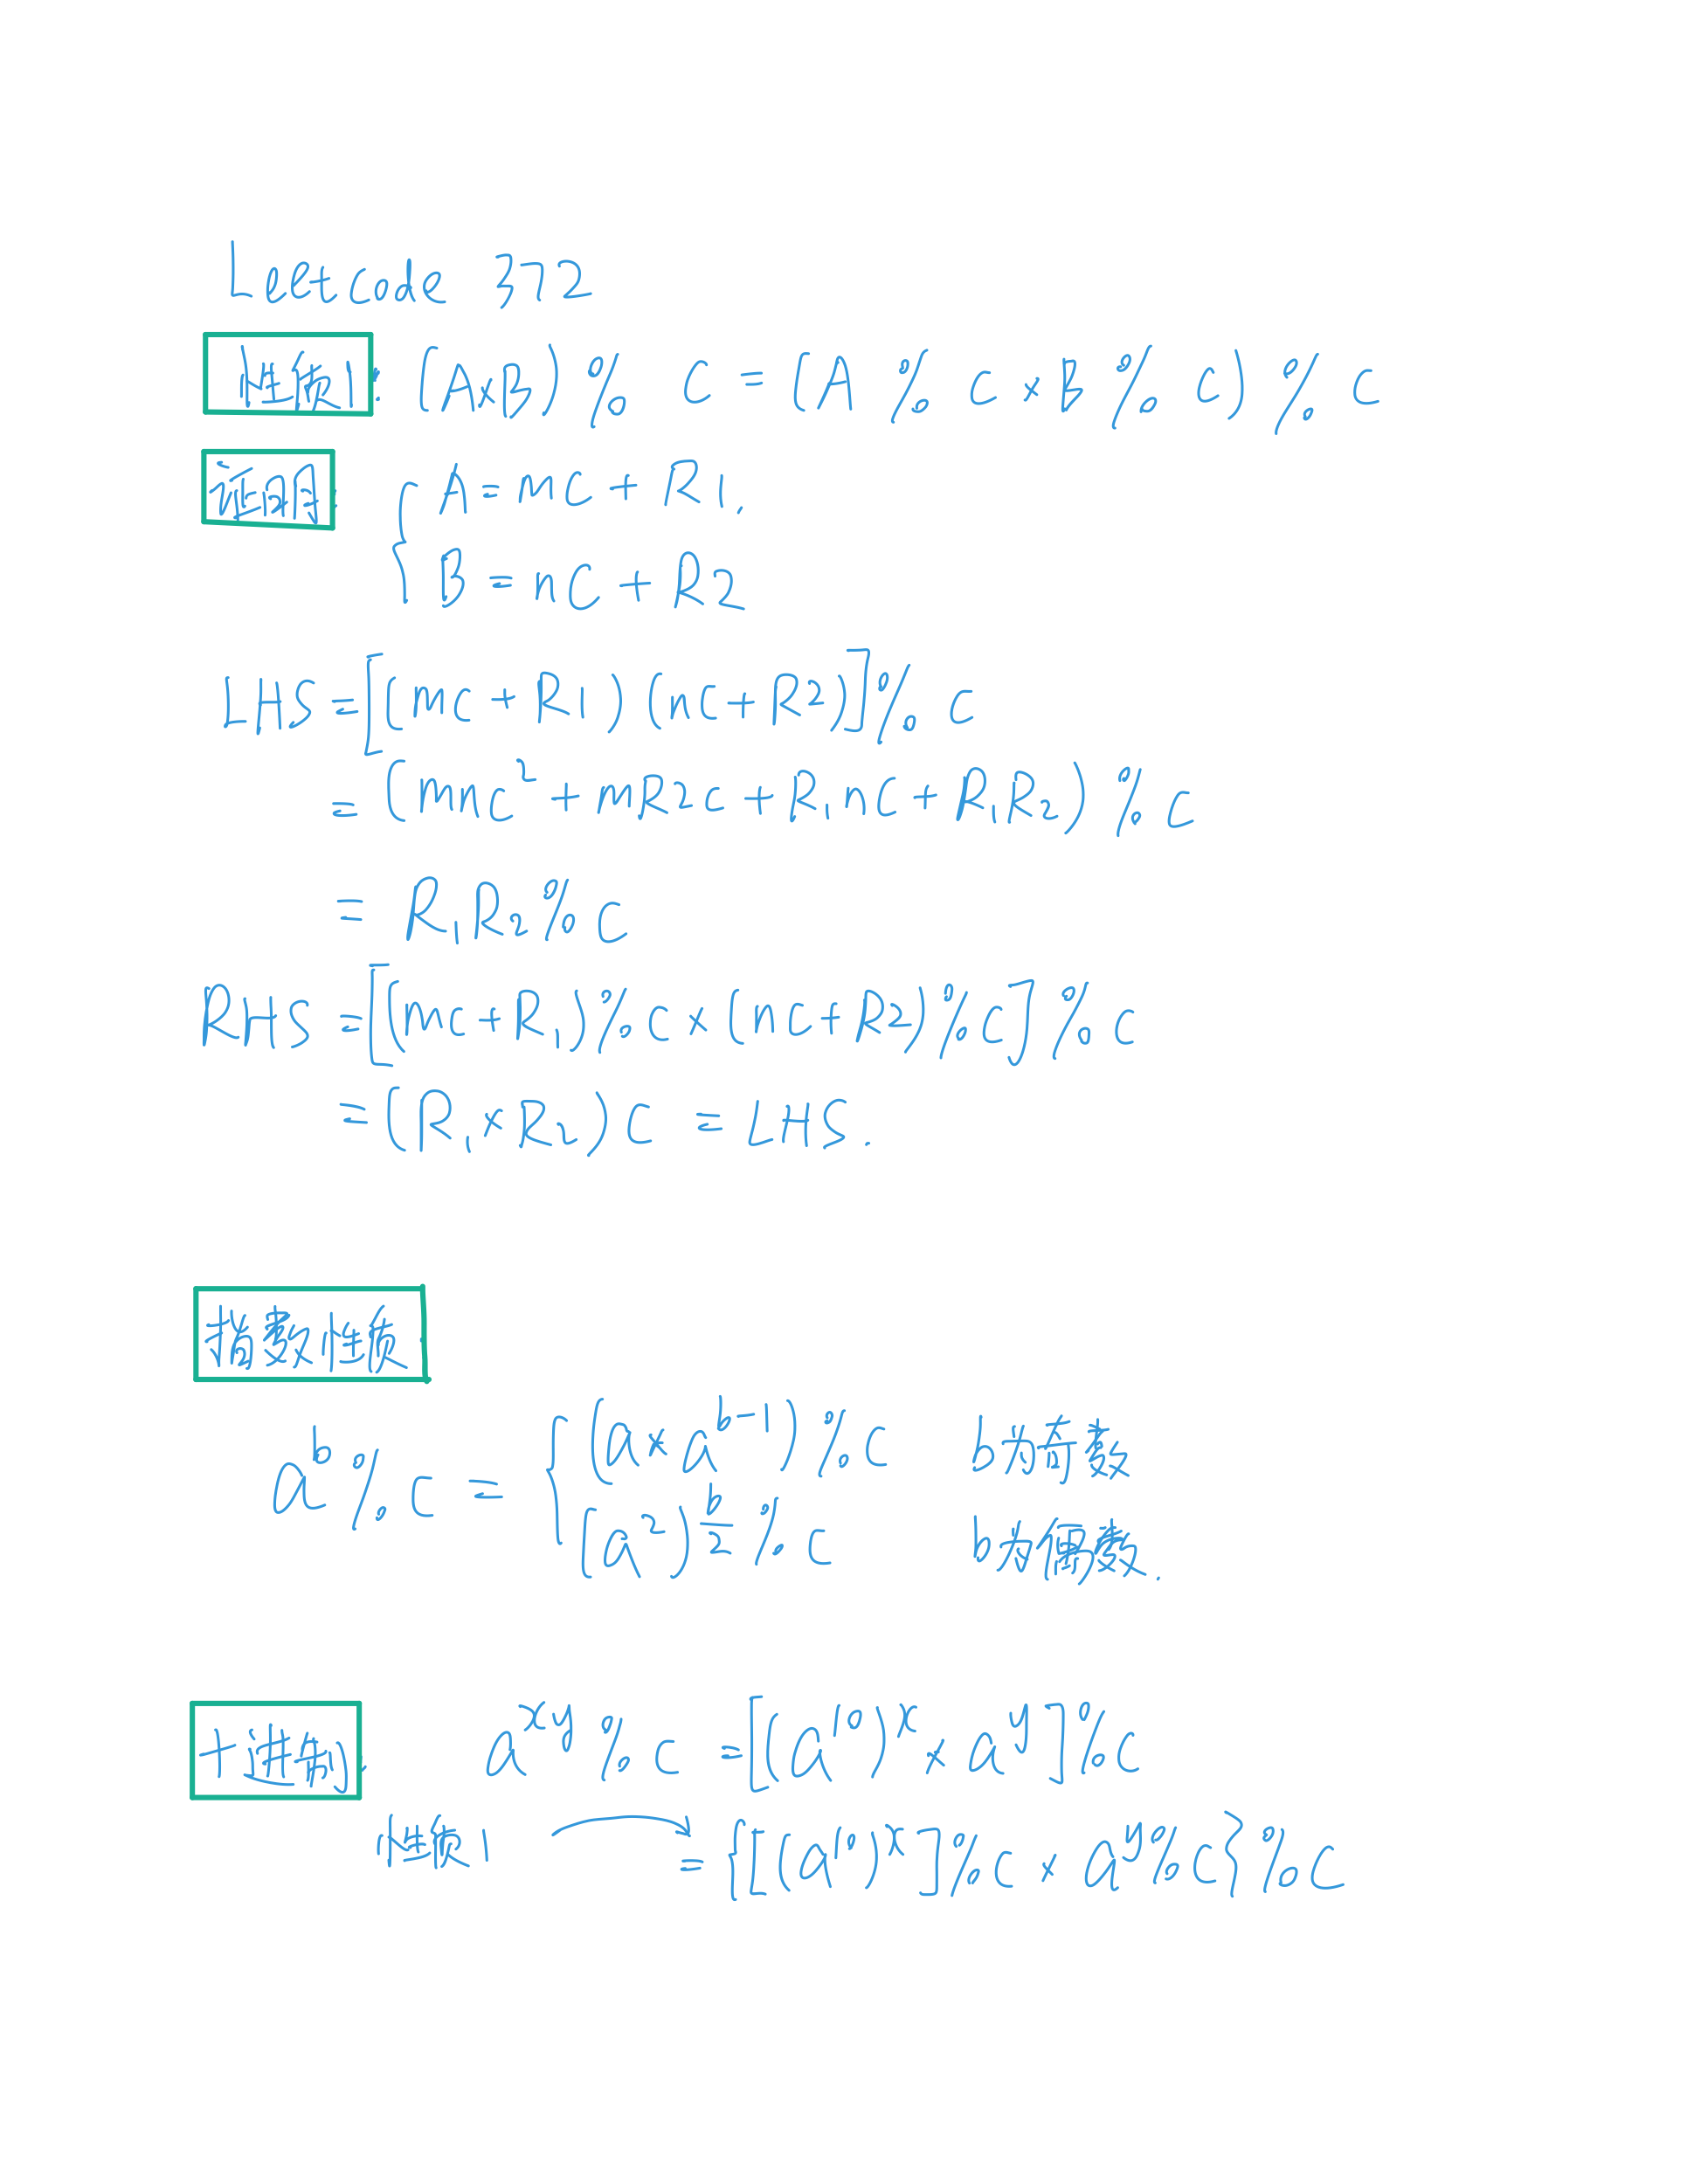 Leetcode 372
性质1: (A×B) % C = (A % C × B % C) % C
证明: { A = mc + R1,
B = nc + R2
LHS = [(mc + R1) (nc + R2)] % C
= (mnc² + mR2c + R1nc + R1R2) % C
= R1R2 % C
RHS = [(mc + R1) % C × (nc + R2) % C] % C
= (R1 × R2) C = LHS.
指数性质:
a^b % c = { (a × a^(b-1)) % C b为奇数
(a²)^(b/2) % C b为偶数.
十进制: a^(xy) % C = [(a^10)^x × a^y] % C
性质1 = {[(a^10)^x] % C × a^y % C} % C